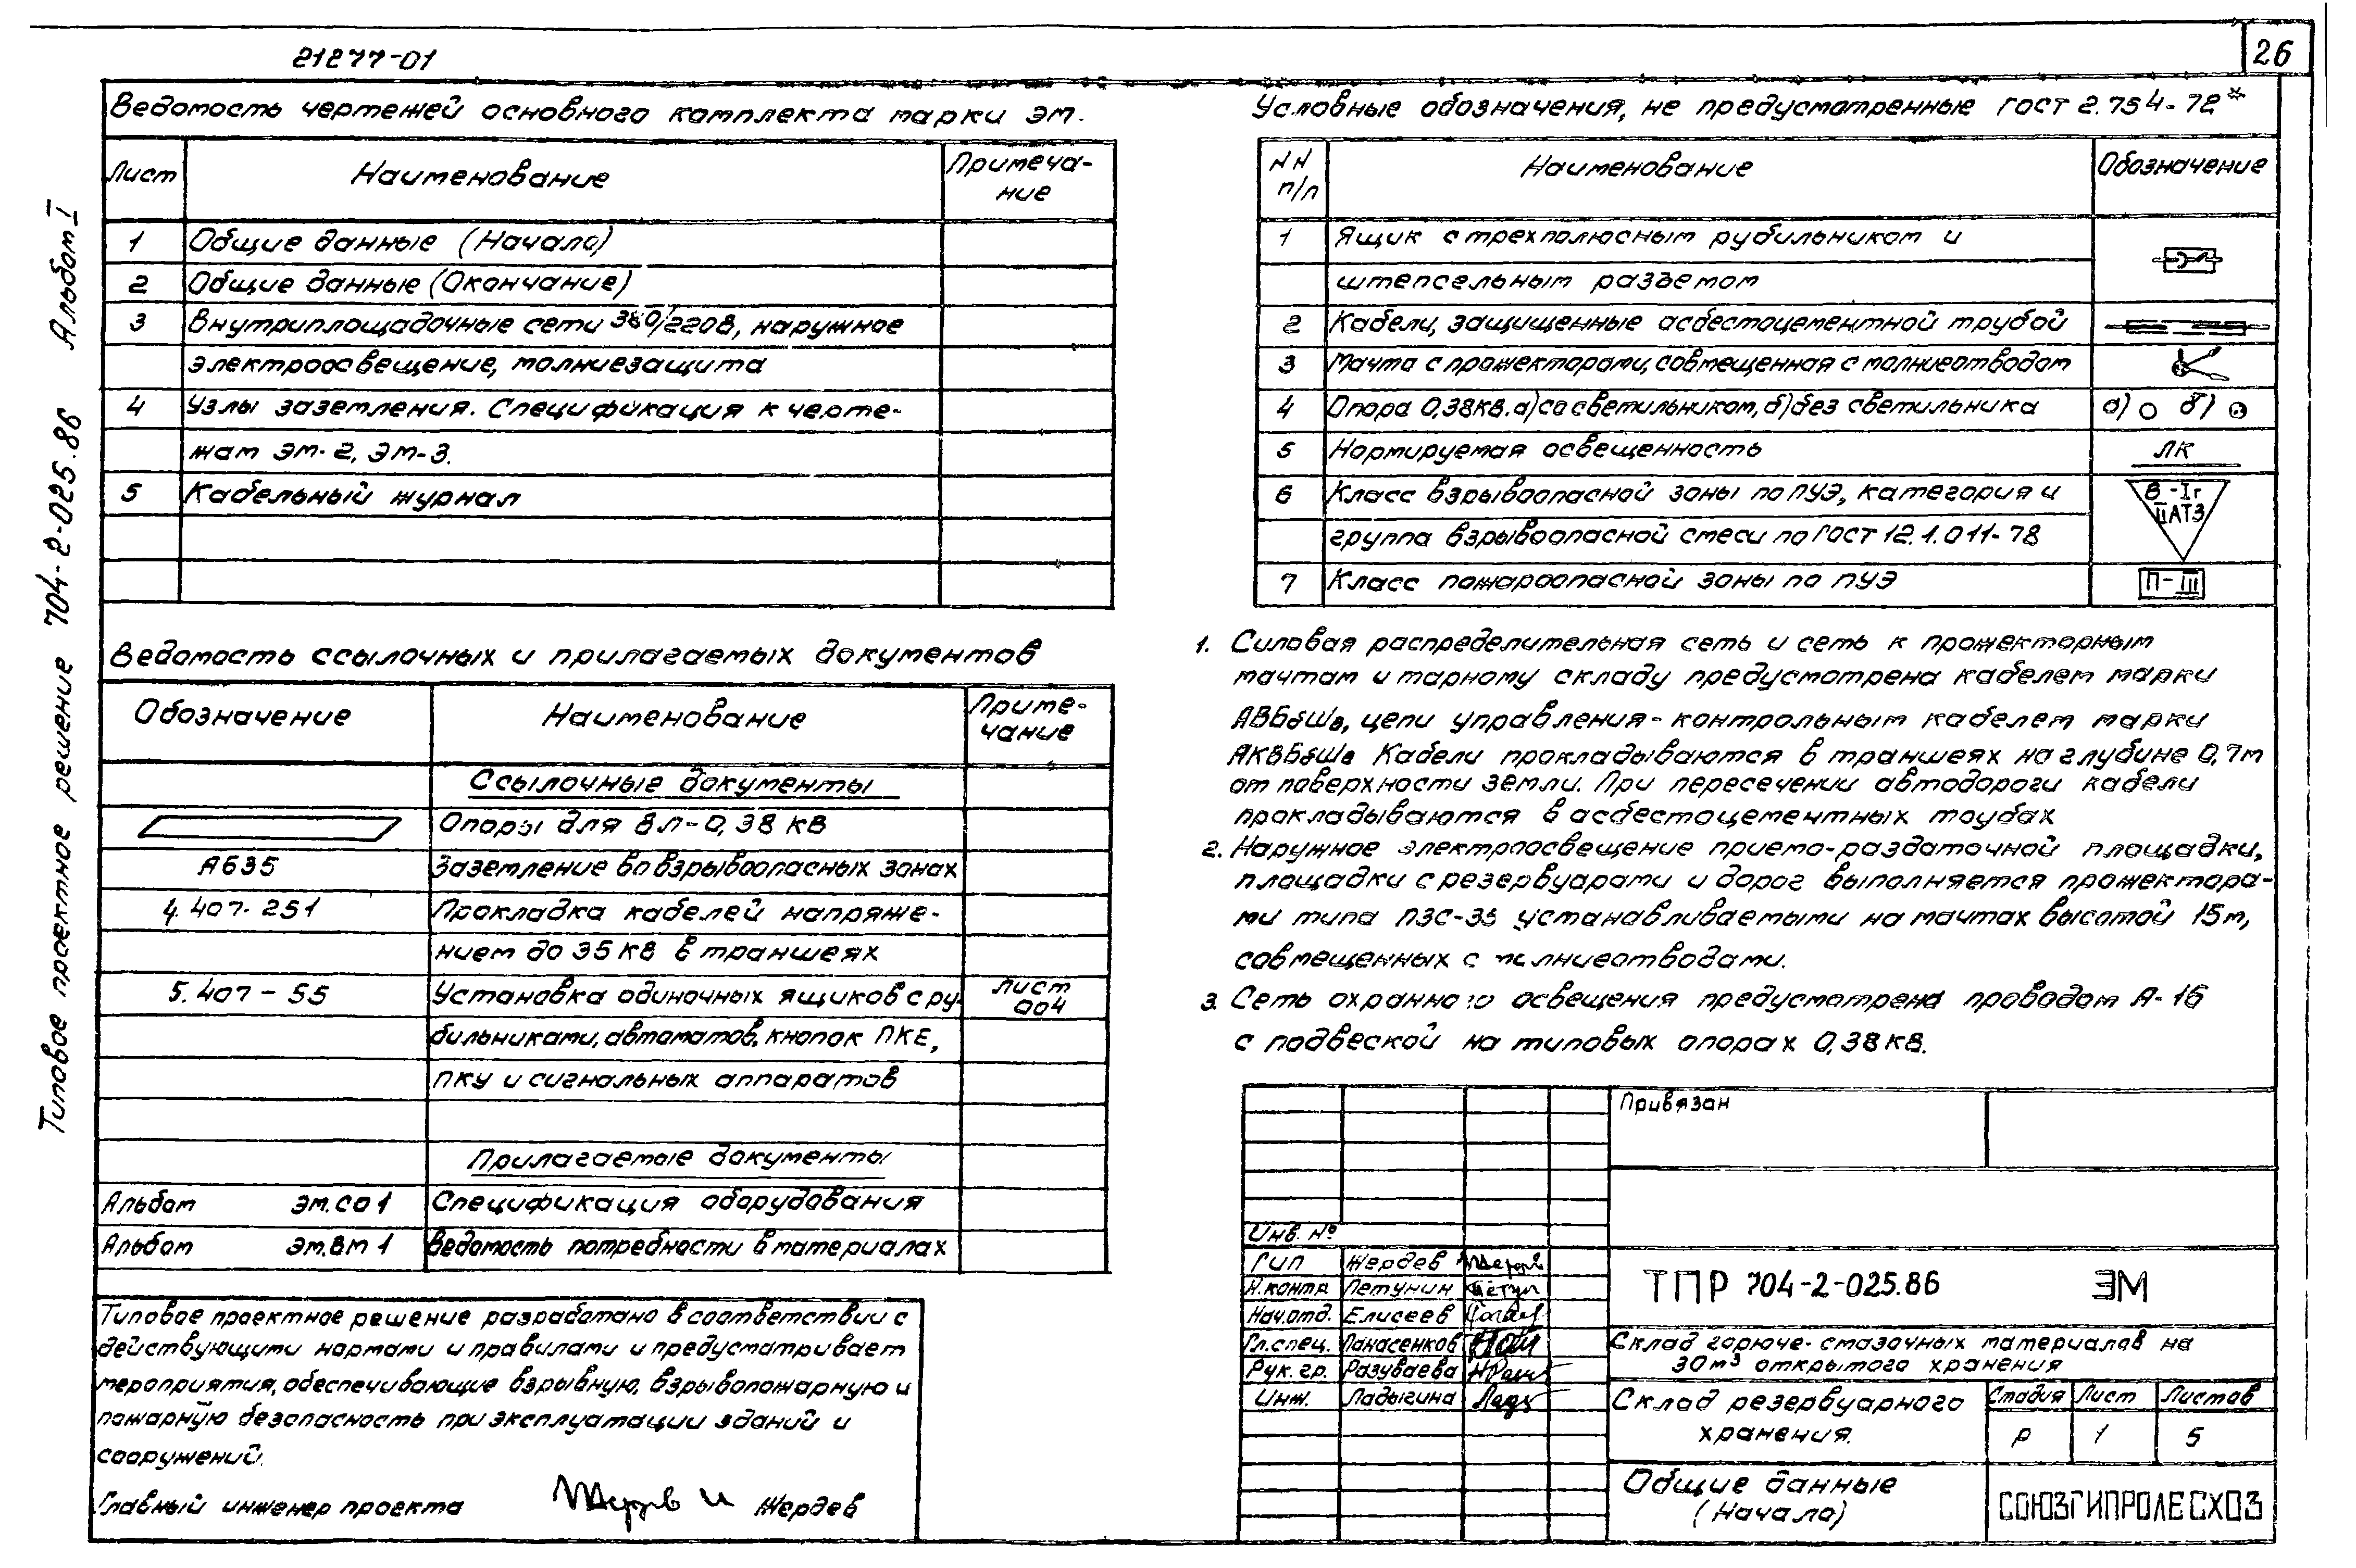 21277-01
26
Типовое проектное решение 704-2-025.86 Альбом I
Ведомость чертежей основного комплекта марки ЭМ.
Лист Наименование Примеча-
ние
1 Общие данные (Начало)
2 Общие данные (Окончание)
3 Внутриплощадочные сети 380/220В, наружное
электроосвещение, молниезащита
4 Узлы заземления. Спецификация к черте-
жам ЭМ-2, ЭМ-3.
5 Кабельный журнал
Ведомость ссылочных и прилагаемых документов
Обозначение Наименование Приме-
чание
Ссылочные документы
Опоры для ВЛ-0,38 кВ
А635 Заземление во взрывоопасных зонах
4.407-251 Прокладка кабелей напряже-
нием до 35 кВ в траншеях
5.407-55 Установка одиночных ящиков с ру- Лист
бильниками, автоматов, кнопок ПКЕ, 004
ПКУ и сигнальных аппаратов
Прилагаемые документы
Альбом ЭМ.СО1 Спецификация оборудования
Альбом ЭМ.ВМ1 Ведомость потребности в материалах
Типовое проектное решение разработано в соответствии с
действующими нормами и правилами и предусматривает
мероприятия, обеспечивающие взрывную, взрывопожарную и
пожарную безопасность при эксплуатации зданий и
сооружений.
Главный инженер проекта Жердев
Условные обозначения, не предусмотренные ГОСТ 2.754-72*
NN
п/п Наименование Обозначение
1 Ящик с трехполюсным рубильником и
штепсельным разъемом
2 Кабели, защищенные асбестоцементной трубой
3 Мачта с прожекторами, совмещенная с молниеотводом
4 Опора 0,38кВ. а) со светильником, б) без светильника а) б)
5 Нормируемая освещенность ЛК
6 Класс взрывоопасной зоны по ПУЭ, категория и В-Iг
группа взрывоопасной смеси по ГОСТ 12.1.011-78 IIАТ3
7 Класс пожароопасной зоны по ПУЭ П-III
1. Силовая распределительная сеть и сеть к прожекторным
мачтам и тарному складу предусмотрена кабелем марки
АВБбШв, цепи управления - контрольным кабелем марки
АКВБбШв Кабели прокладываются в траншеях на глубине 0,7м
от поверхности земли. При пересечении автодороги кабели
прокладываются в асбестоцементных трубах
2. Наружное электроосвещение приемо-раздаточной площадки,
площадки с резервуарами и дорог выполняется прожектора-
ми типа ПЗС-35 устанавливаемыми на мачтах высотой 15м,
совмещенных с молниеотводами.
3. Сеть охранного освещения предусмотрена проводом А-16
с подвеской на типовых опорах 0,38кВ.
Привязан
Инв. №
ГИП Жердев
Н.контр. Петунин
Нач.отд. Елисеев
Гл.спец. Панасенков
Рук. гр. Разуваева
Инж. Ладыгина
ТПР 704-2-025.86 ЭМ
Склад горюче-смазочных материалов на
30м³ открытого хранения
Склад резервуарного
хранения.
Стадия Лист Листов
Р 1 5
Общие данные
(Начало)
СОЮЗГИПРОЛЕСХОЗ